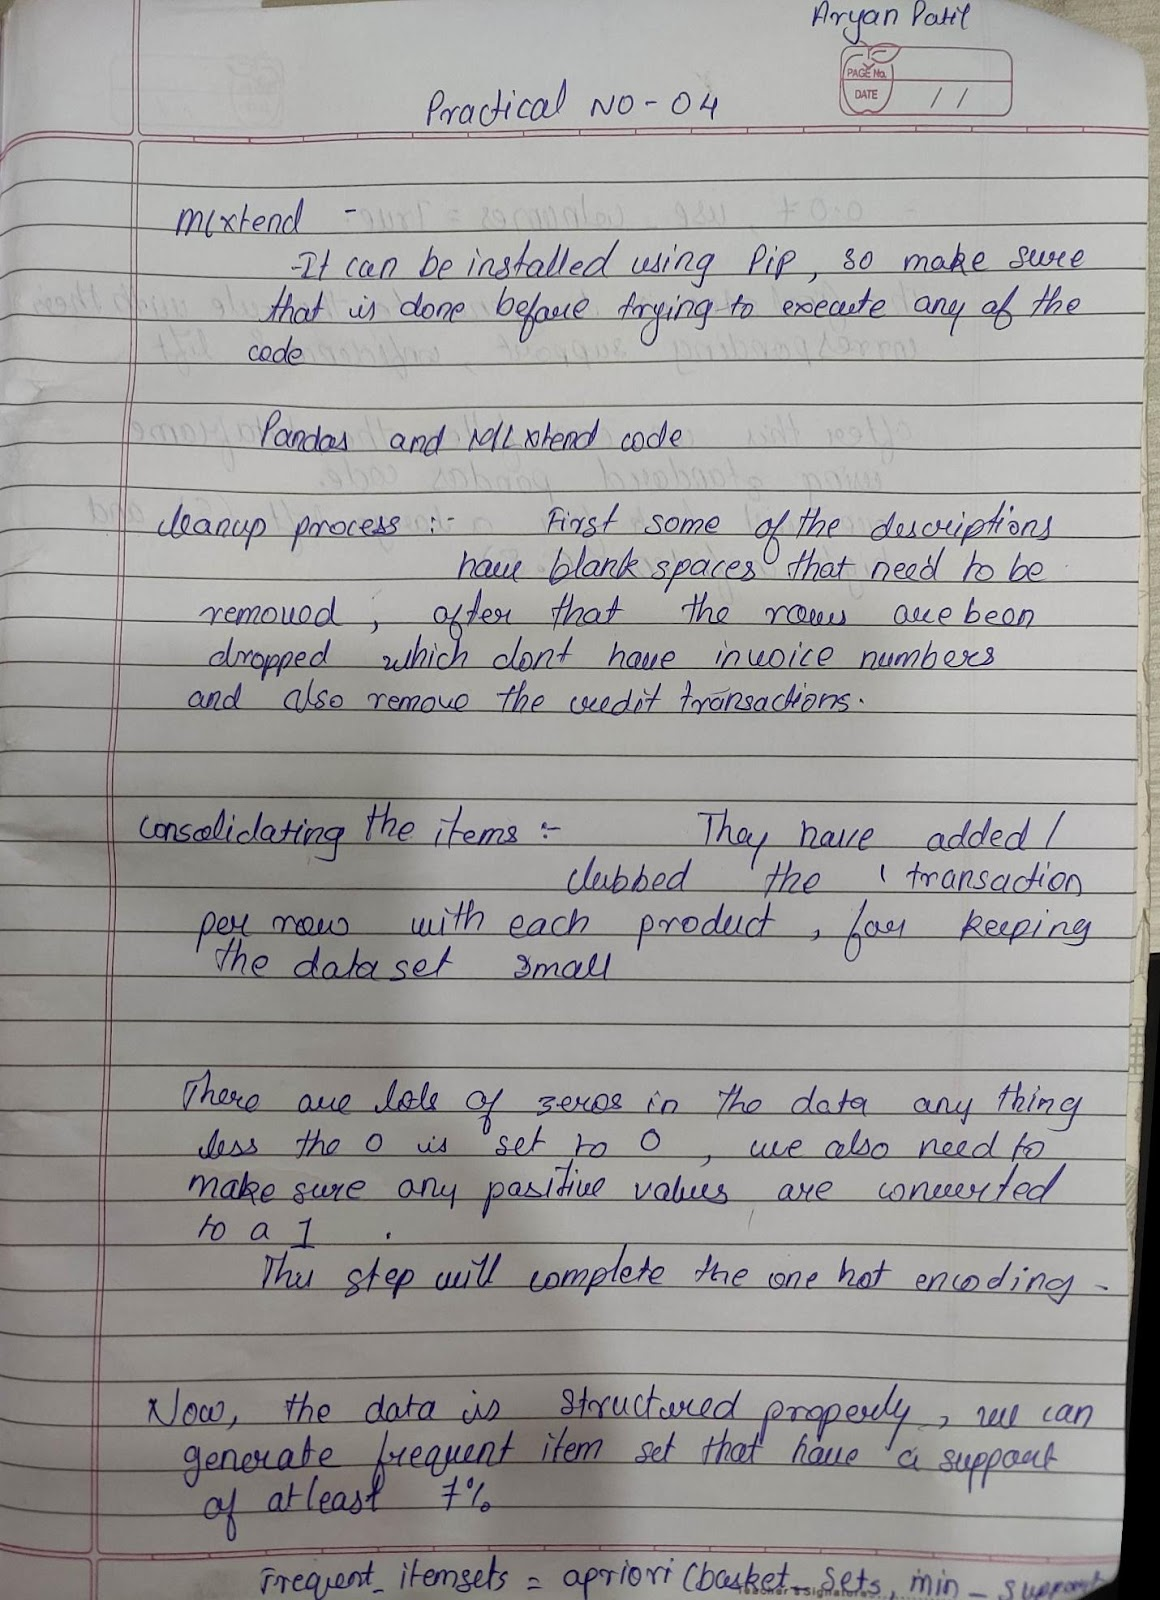 Aryan Patil
PAGE No.
DATE / /
Practical NO - 04
Mlxtend -
-It can be installed using Pip, so make sure
that is done before trying to execute any of the
code
Pandas and MLxtend code
cleanup process :- First some of the descriptions
have blank spaces that need to be
removed, after that the rows are been
dropped which dont have invoice numbers
and also remove the credit transactions.
consolidating the items :- They have added /
clubbed the 1 transaction
per row with each product, for keeping
the data set small
There are lots of zeros in the data any thing
less the 0 is set to 0, we also need to
make sure any positive values are converted
to a 1.
This step will complete the one hot encoding -
Now, the data is structured properly, we can
generate frequent item set that have a support
of atleast 7%
Frequent_itemsets = apriori (basket_sets, min_support